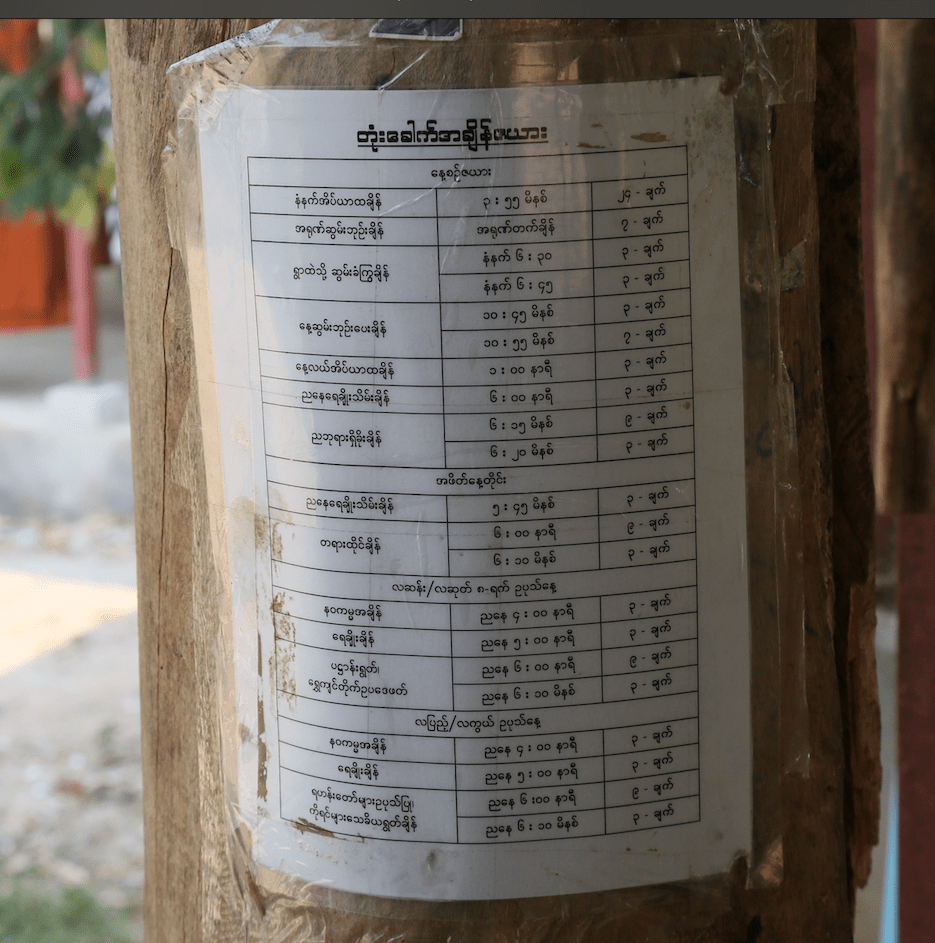 တုံးခေါက်အချိန်ဇယား
နေ့စဉ်ဇယား
နံနက်အိပ်ယာထချိန် ၃ : ၅၅ မိနစ် ၂၄ - ချက်
အရုဏ်ဆွမ်းဘုဉ်းချိန် အရုဏ်တက်ချိန် ၇ - ချက်
ရွာထဲသို့ ဆွမ်းခံကြွချိန် နံနက် ၆ : ၃၀ ၃ - ချက်
နံနက် ၆ : ၄၅ ၃ - ချက်
နေ့ဆွမ်းဘုဉ်းပေးချိန် ၁၀ : ၄၅ မိနစ် ၃ - ချက်
၁၀ : ၅၅ မိနစ် ၇ - ချက်
နေ့လယ်အိပ်ယာထချိန် ၁ : ၀၀ နာရီ ၃ - ချက်
ညနေရေချိုးသိမ်းချိန် ၆ : ၀၀ နာရီ ၃ - ချက်
ညဘုရားရှိခိုးချိန် ၆ : ၁၅ မိနစ် ၉ - ချက်
၆ : ၂၀ မိနစ် ၃ - ချက်
အဖိတ်နေ့တိုင်း
ညနေရေချိုးသိမ်းချိန် ၅ : ၄၅ မိနစ် ၃ - ချက်
တရားထိုင်ချိန် ၆ : ၀၀ နာရီ ၉ - ချက်
၆ : ၁၀ မိနစ် ၃ - ချက်
လဆန်း/လဆုတ် ၈-ရက် ဥပုသ်နေ့
နဝကမ္မအချိန် ညနေ ၄ : ၀၀ နာရီ ၃ - ချက်
ရေချိုးချိန် ညနေ ၅ : ၀၀ နာရီ ၃ - ချက်
ပဋ္ဌာန်းရွတ်၊ ညနေ ၆ : ၀၀ နာရီ ၉ - ချက်
ရွှေကျင်တိုက်ဥပဒေဖတ် ညနေ ၆ : ၁၀ မိနစ် ၃ - ချက်
လပြည့်/လကွယ် ဥပုသ်နေ့
နဝကမ္မအချိန် ညနေ ၄ : ၀၀ နာရီ ၃ - ချက်
ရေချိုးချိန် ညနေ ၅ : ၀၀ နာရီ ၃ - ချက်
ရဟန်းတော်များဥပုသ်ပြု၊ ညနေ ၆ :၀၀ နာရီ ၉ - ချက်
ကိုရင်များသေခိယရွတ်ချိန် ညနေ ၆ : ၁၀ မိနစ် ၃ - ချက်